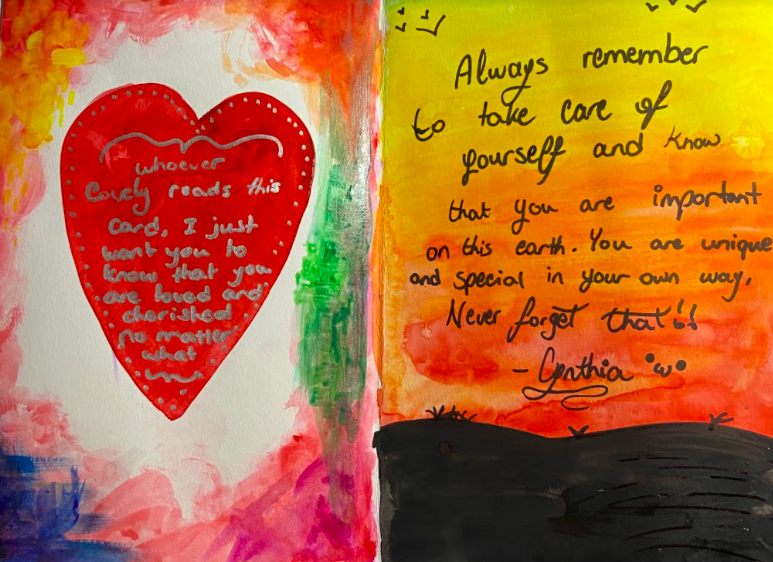 whoever
lovely reads this
card, I just
want you to
know that you
are loved and
cherished
no matter
what
Always remember
to take care of
yourself and know
that you are important
on this earth. You are unique
and special in your own way.
Never forget that!!
- Cynthia •ω•